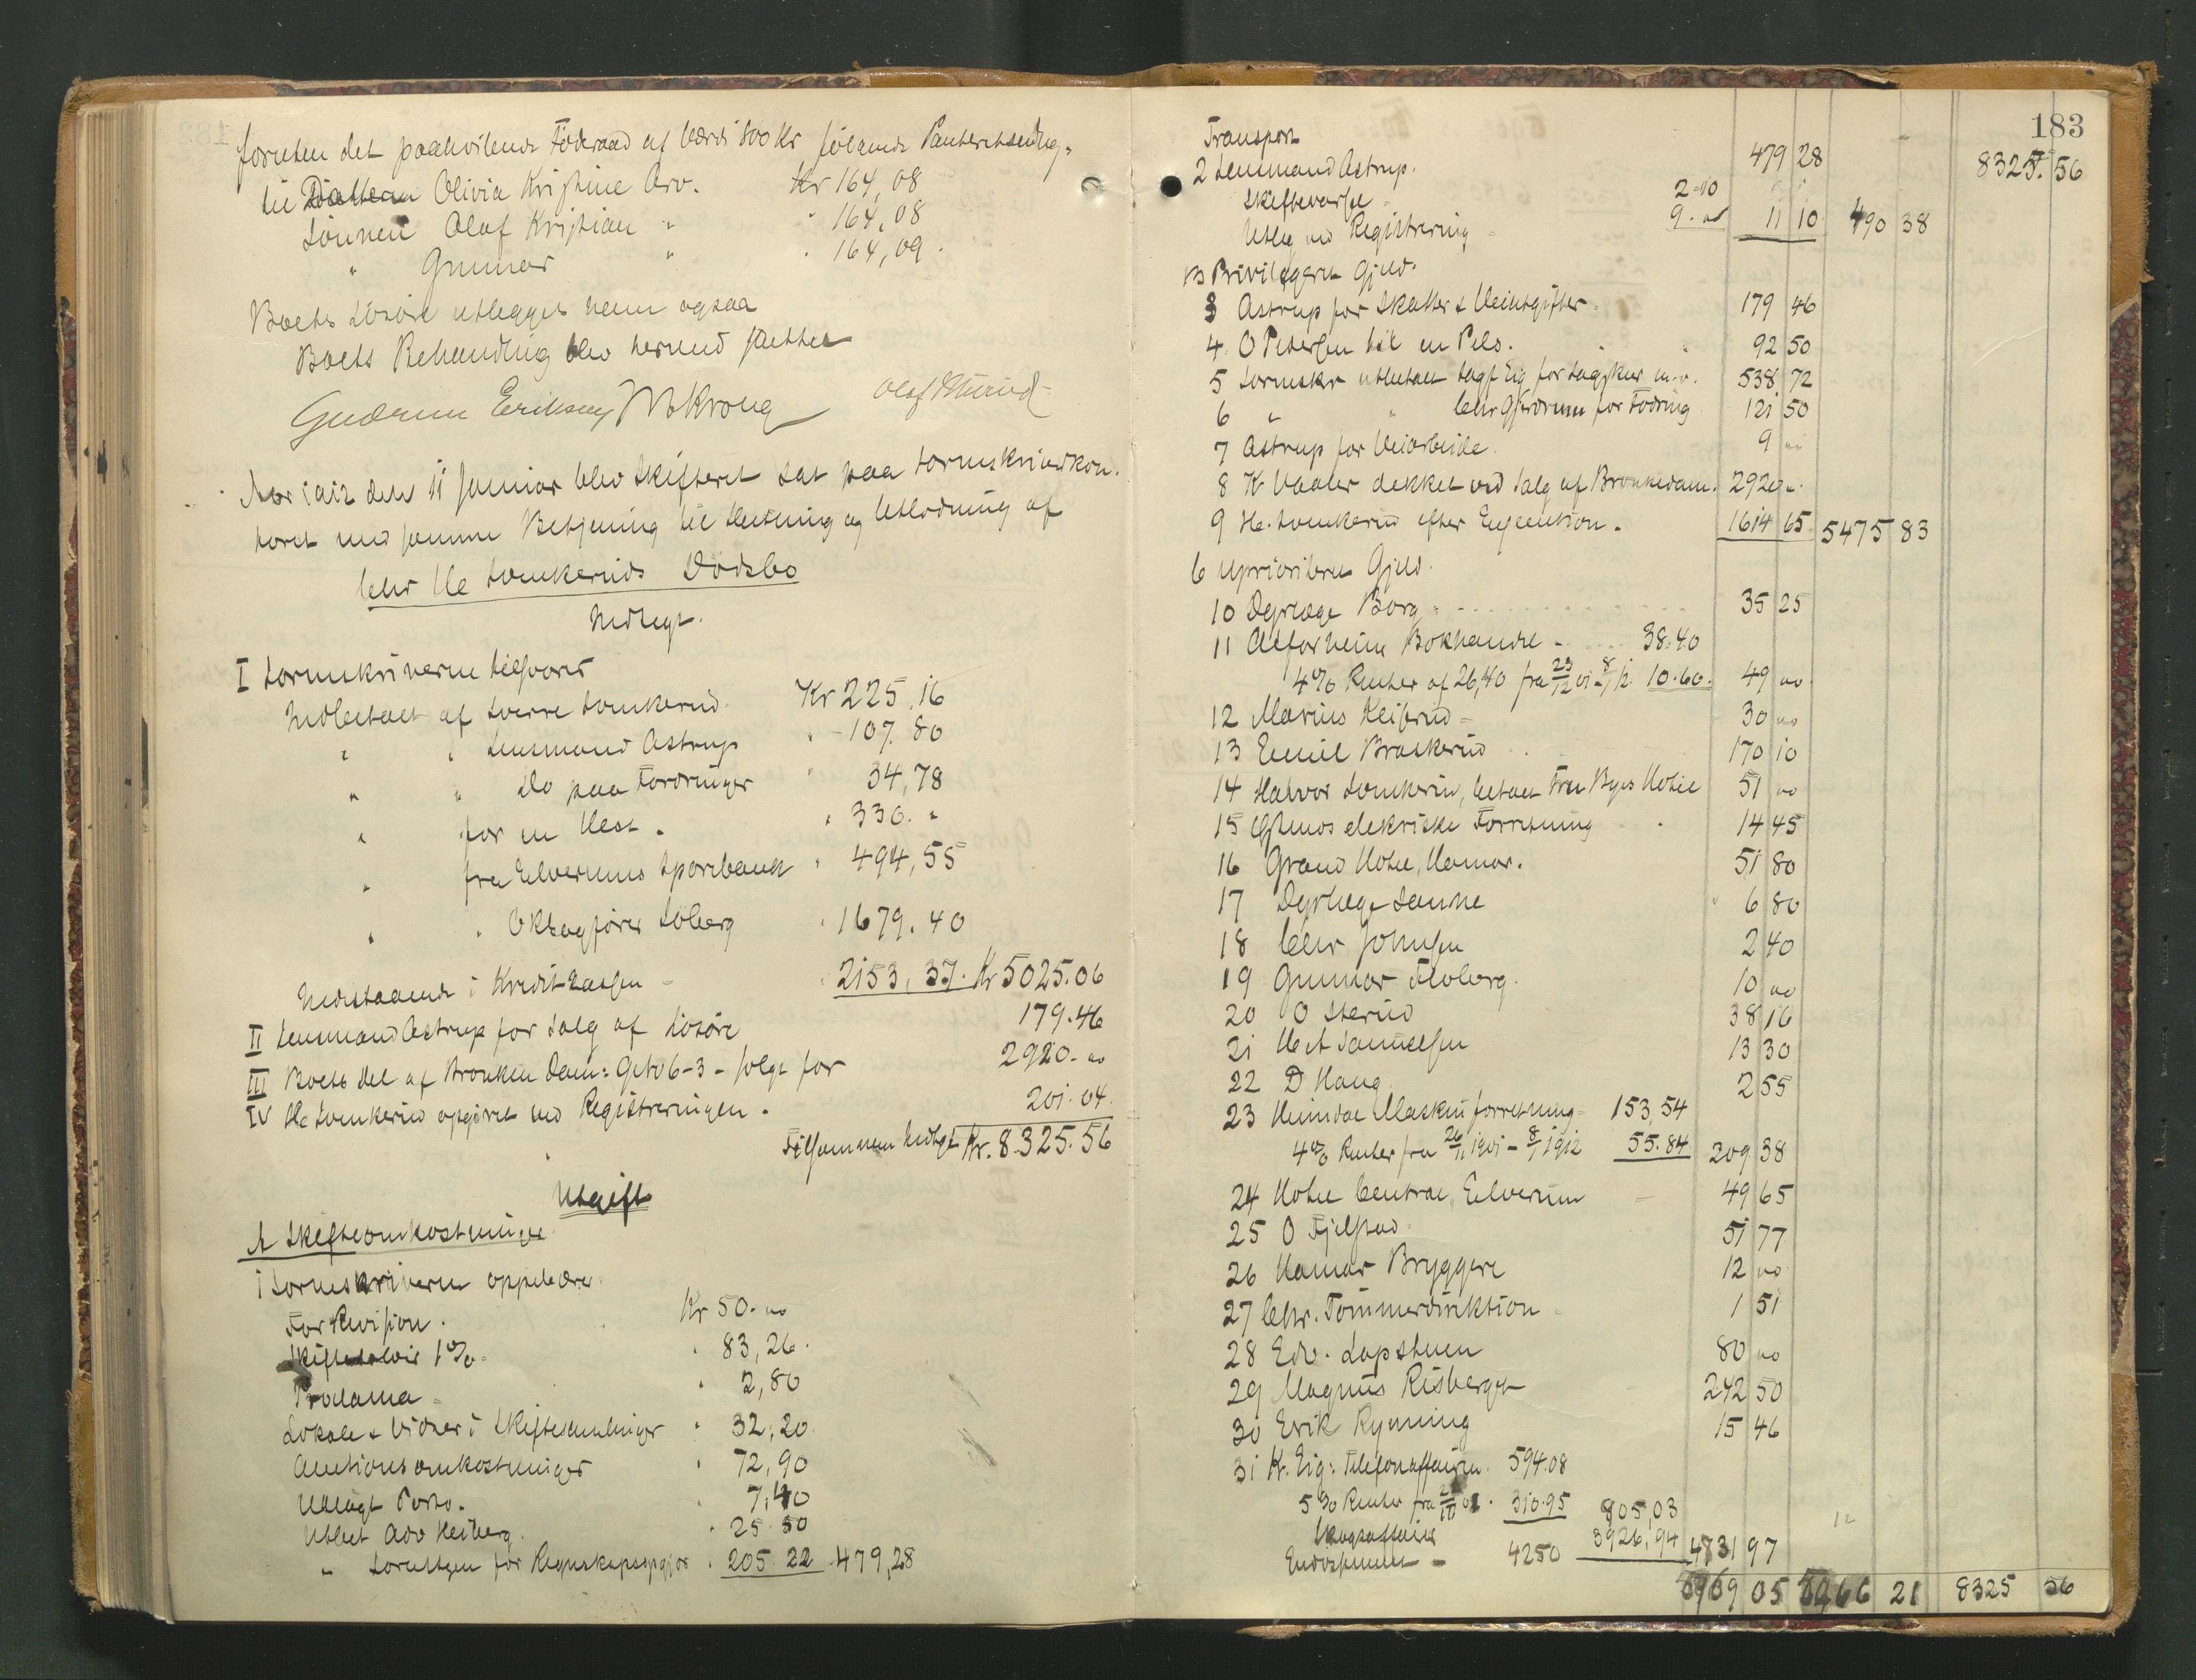 foruten det paahvilende Föderaad af Værdi 800 Kr følgende Panteretsedlg:
til Datteren Olivia Kristine Arv. Kr 164,08
Sönnen Olaf Kristian " " 164,08
" Gunnar " " 164,09.
Boets Lösöre utlegges hem ogsaa
Boets Behandling blev hermed sluttet
Gudrun Eriksen M Kroug Olaf
Aar 1912 den 11 Januar blev Skifteret sat paa Sorenskriverkon.
toret med samme Betjening til Slutning og Utlodning af
Chr He Lomkeruds Dödsbo
Indtegt.
I Sorenskriveren tilsvarer
Indbetalt af Sverre Lomkerud Kr 225,16
" " Lensmand Astrup " 107.80
" " Do paa Fordringer " 34,78
" for en Hest. " 336. "
" fra Elverums Sparebank " 494,55
" " OKSagfører Solberg " 1679.40
Indestaaende i Kreditkassen " 2153,37. Kr 5025.06
II Lensmand Astrup for Salg af Lösöre 179.46
III Boets Del af Bronken Dam: Gno 6-3 - solgt for 2920.00
IV He Lomkerud opgivet ved Registreringen. 201.04.
Tilsammen Indtegt Kr. 8.325.56
Utgift
A Skifteomkostninger
1 Sorenskriveren oppebærer
For Revision. Kr 50.00
1% " 83,26.
Proclama " 2,80
Lokale & Vidner i Skiftesamlinger " 32,20
Auctionsomkostninger " 72,90
Utlagt Porto. " 7,40
Utbet Adv Heiberg. " 25.50
" for Regnskapsopgjør " 205.22 479,28
183
Transport 479 28 8325. 56
2 Lensmand Astrup.
Skiftevarsel 2-10
Utleg ved Registrering 9.00 11 10 490 38
B Privilegeret Gjeld.
3 Astrup for Skatter & Veiutgifter 179 46
4. O Petersen til en Pels. 92 50
5 Sorenskr utbetalt Sagf Eig for Lagskur m.v. 538 72
6 " " Chr Gjerdrum for Fodring 121 50
7 Astrup for Veiarbeide 9 00
8 K Vaaler dekket ved Salg af Bronkedam. 2920 "
9 He. Lomkerud efter Execution. 1614 65 5475 83
C Uprioriteret Gjeld.
10 Dyrlæge Borg 35 25
11 Alfarheim Bokhandel 38.40
4% Renter af 26,40 fra 23/12 01 - 8/1 12 10.60. 49 00
12 Marius Keiserud 30 00
13 Emil Braskerud 170 10
14 Halvor Lomkerud, betalt Fru Byes Hotel 51 00
15 elekriske Forretning 14 45
16 Grand Hotel, Hamar. 51 80
17 Dyrlæge Sanne 6 80
18 Chr Johnsen 2 40
19 Gunnar Floberg. 10 00
20 O Sterud 38 16
21 He A Samuelsen 13 30
22 D Haug 2 55
23 Heimdal Maskinforretning 153,54
4% Renter fra 26/11 1901 - 8/1 1912 55.84 209 38
24 Hotel Central, Elverum 49 65
25 O Fjelstad 51 77
26 Hamar Bryggeri 12 00
27 Chr. Tömmerdirektion 1 51
28 Edv. Lapstuen 80 00
29 Magnus Risberget 242 50
30 Erik Rynning 15 46
31 K. Eig: Telefonaffairen. 594.08
5% Renter fra 310.95 805,03
Skogsaffairer 3926,94
Endossement 4250 4731 97
5909 05 5966 21 8325 56